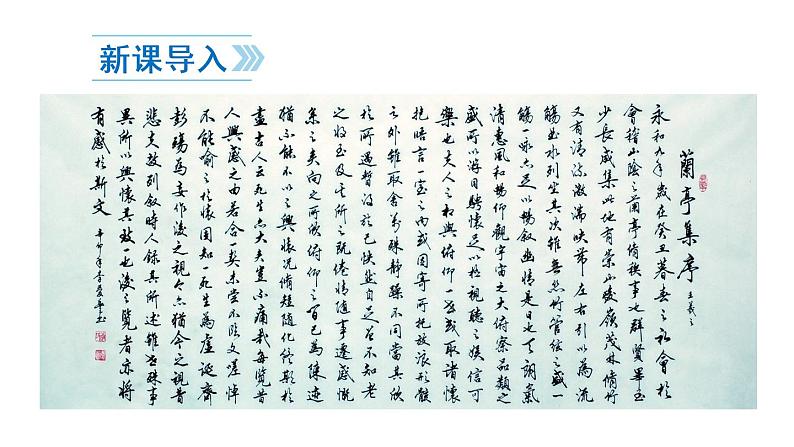 新课导入
蘭亭集序 王羲之
永和九年歲在癸丑暮春之初會於
會稽山陰之蘭亭脩稧事也群賢畢至
少長咸集此地有崇山峻嶺茂林脩竹
又有清流激湍映帶左右引以為流
觴曲水列坐其次雖無絲竹管弦之盛一
觴一詠亦足以暢敘幽情是日也天朗氣
清惠風和暢仰觀宇宙之大俯察品類之
盛所以游目騁懷足以極視聽之娛信可
樂也夫人之相與俯仰一世或取諸懷
抱晤言一室之內或因寄所托放浪形骸
之外雖取舍萬殊靜躁不同當其欣
於所遇暫得於己快然自足不知老
之將至及其所之既倦情隨事遷感慨
系之矣向之所欣俯仰之間已為陳迹
猶不能不以之興懷況脩短隨化終期於
盡古人云死生亦大矣豈不痛哉每覽昔
人興感之由若合一契未嘗不臨文嗟悼
不能喻之於懷固知一死生為虛誕齊
彭殤為妄作後之視今亦猶今之視昔
悲夫故列敘時人錄其所述雖世殊事
異所以興懷其致一也後之覽者亦將
有感於斯文 辛卯年